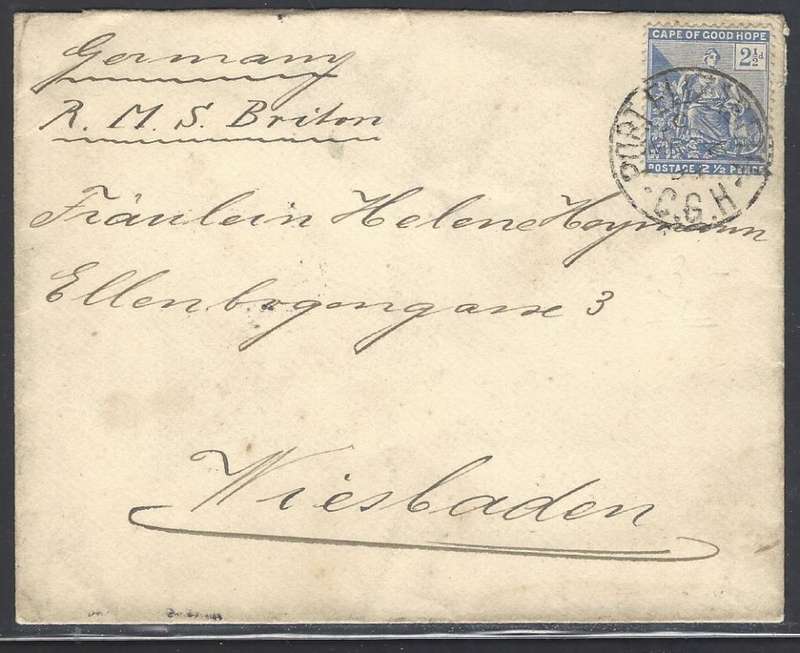 Germany
R. M. S. Briton
CAPE OF GOOD HOPE
2½d
POSTAGE 2½ PENCE
PORT ELIZABETH
C.G.H
Fräulein Helene Heymann
Ellenbogengasse 3
Wiesbaden